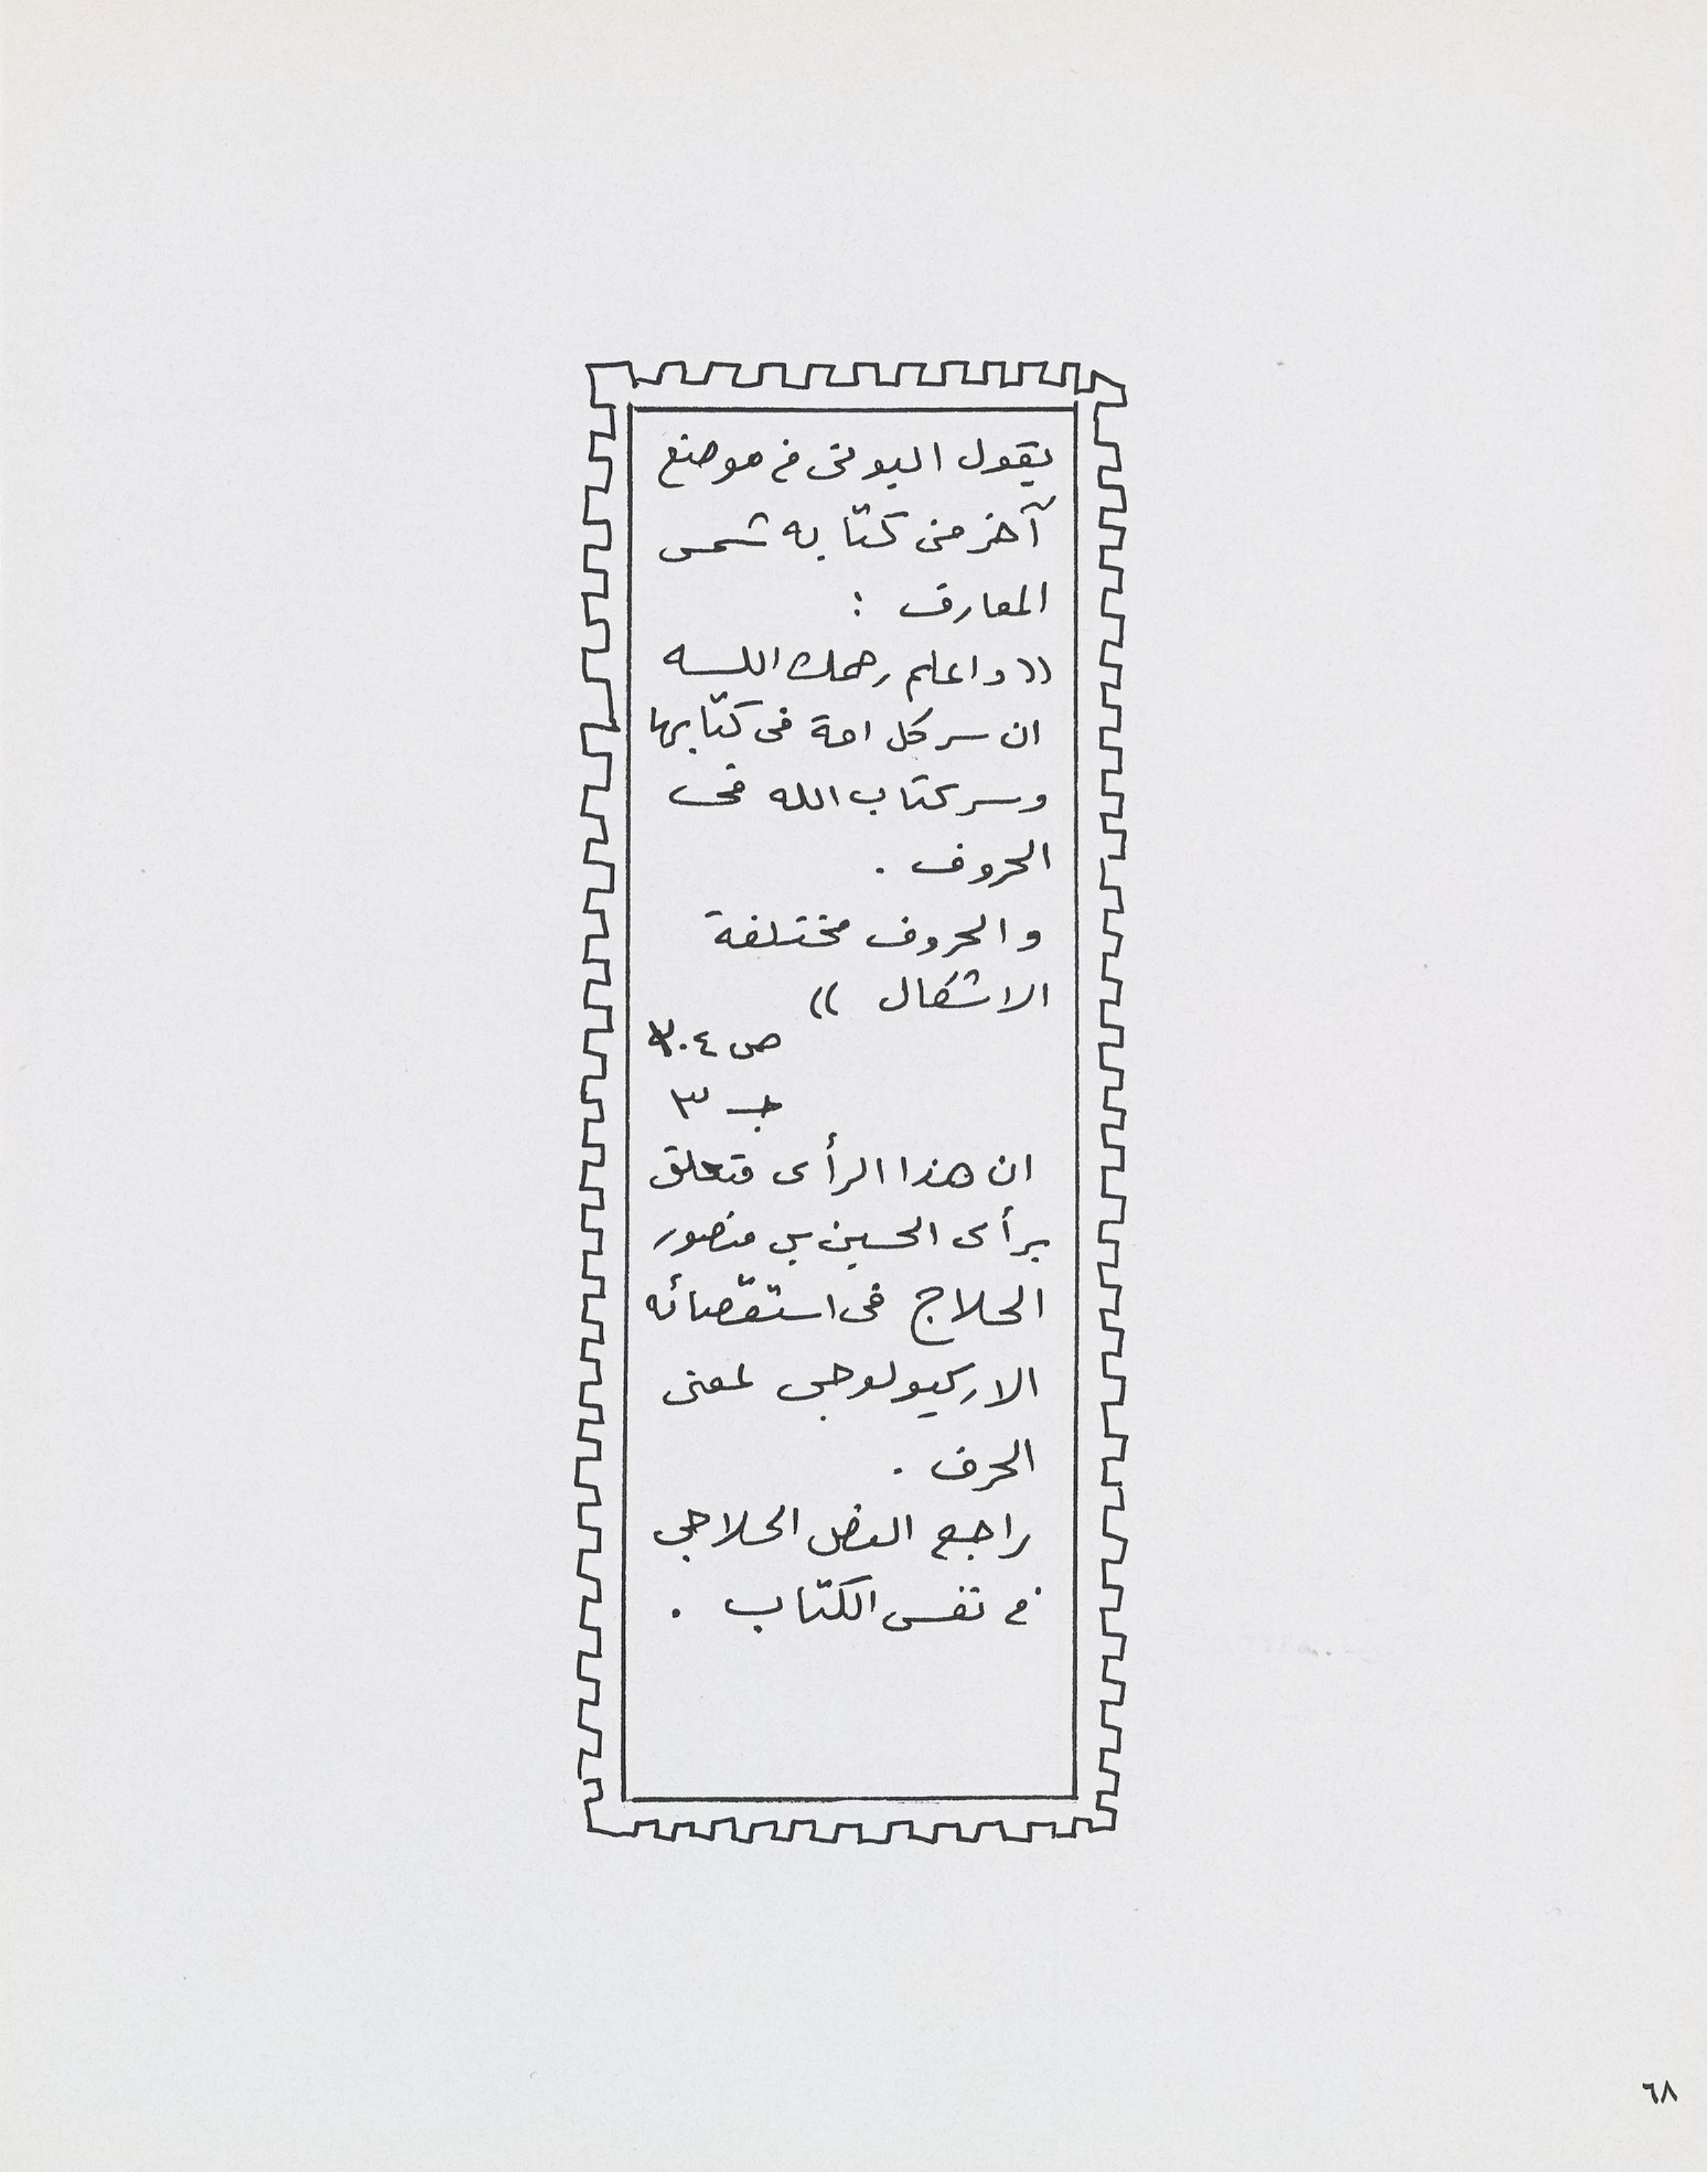 يقول البونى فى موضع
آخر من كتابه شمس
المعارف :
(( واعلم رحمك اللـه
ان سر كل امة فى كتابها
وسر كتاب الله فى
الحروف .
والحروف مختلفة
الاشكال ))
ص ٣٠٤
جـ ٣
ان هذا الرأى متعلق
برأى الحسين بن منصور
الحلاج فى استقصائه
الاركيولوجى لمعنى
الحرف .
راجع النص الحلاجى
فى نفس الكتاب .
٦٨